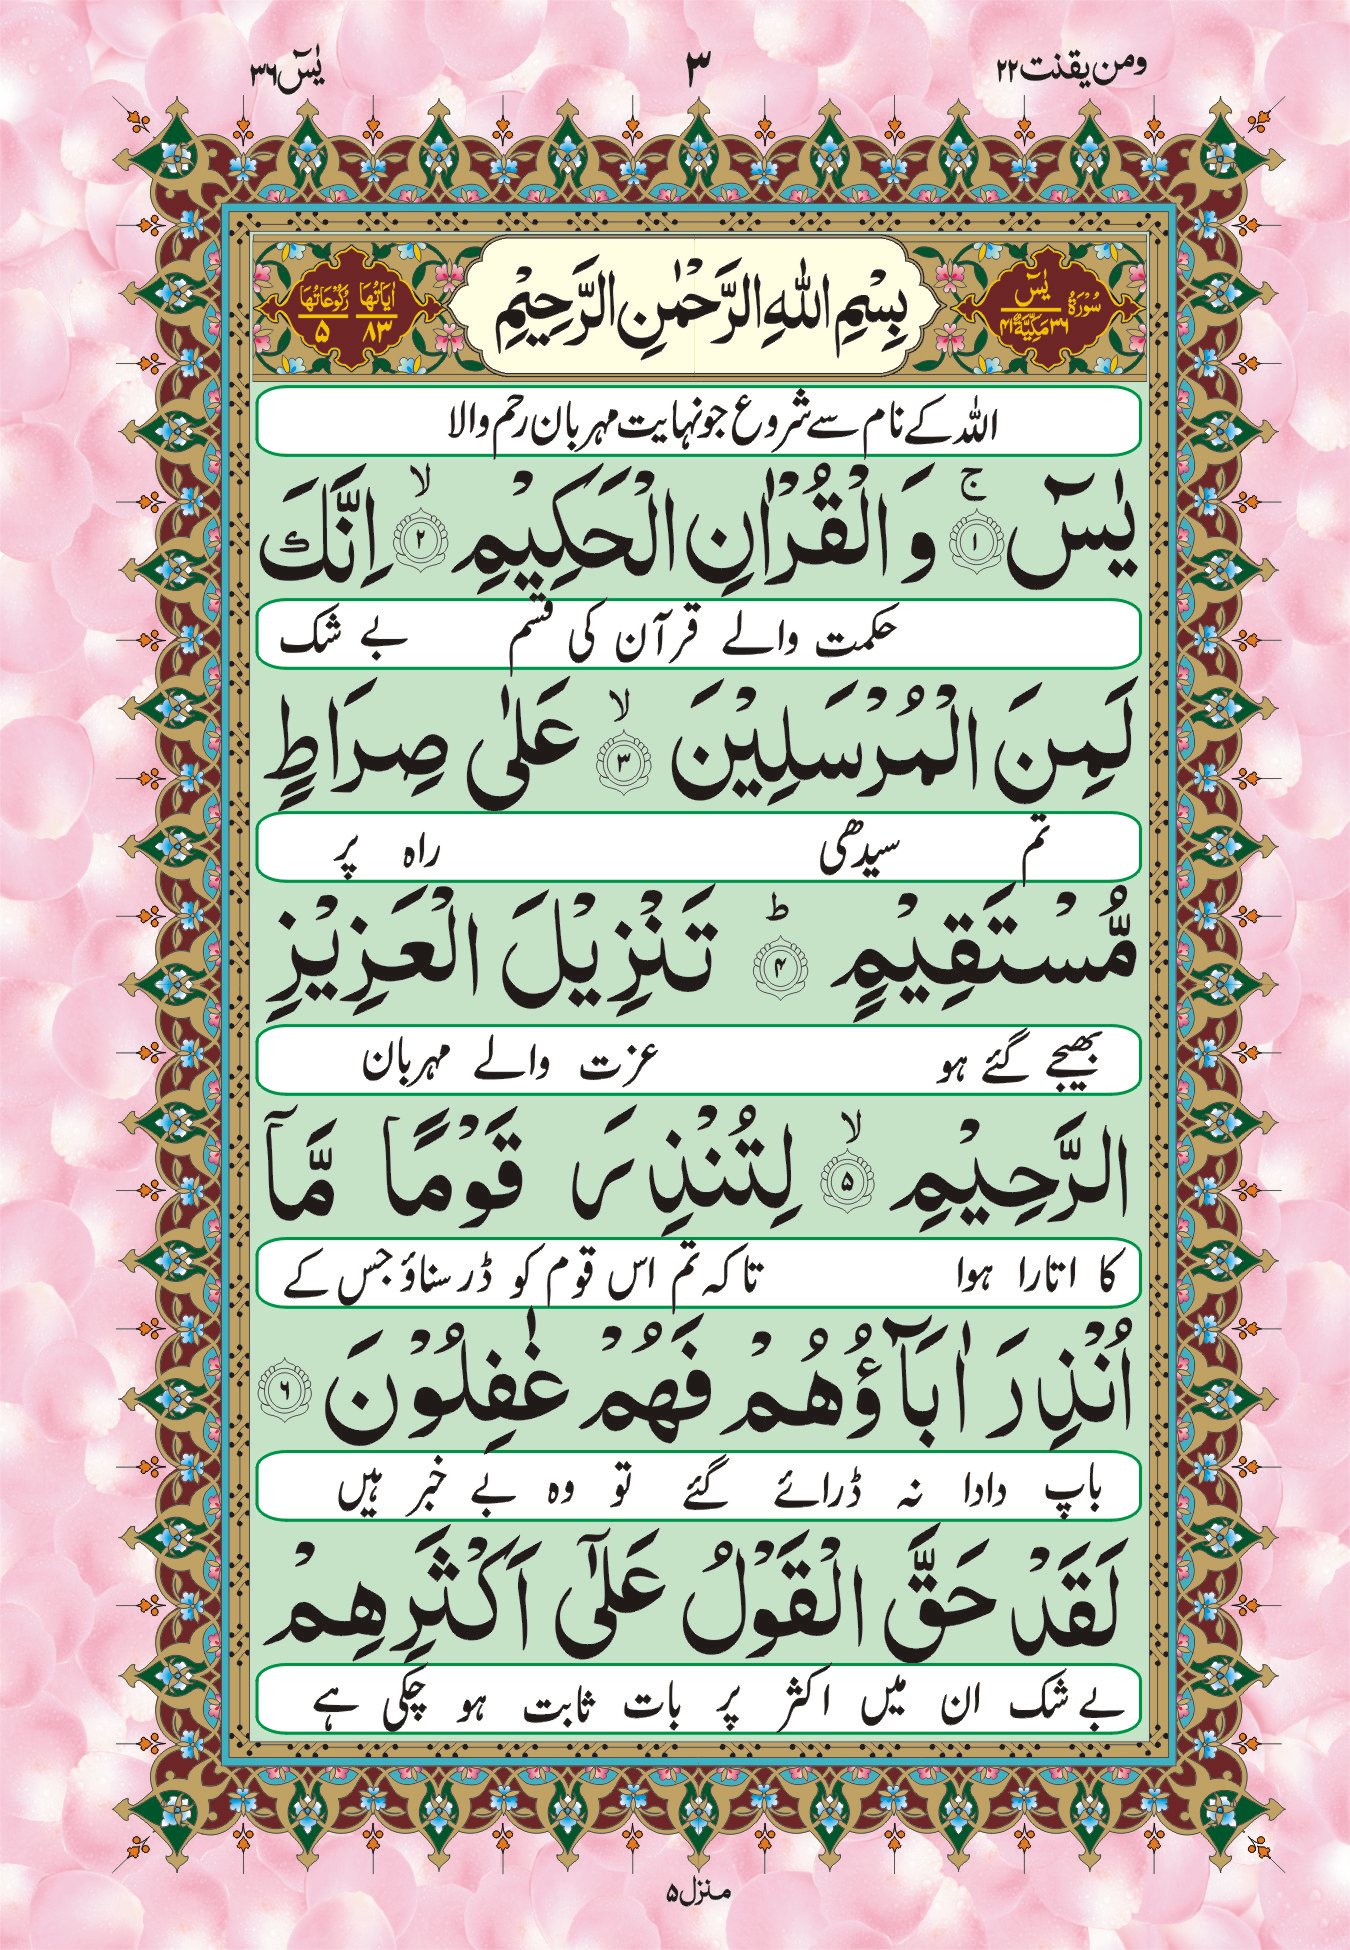 ومن یقنت ۲۲
۳
یٰسٓ ۳۶
سُوْرَۃُ یٰسٓ ۳۶ مَکِّیَّۃٌ ۴۱
بِسْمِ اللّٰهِ الرَّحْمٰنِ الرَّحِيْمِ
اٰیَاتُهَا ۸۳ رُکُوْعَاتُهَا ۵
اللہ کے نام سے شروع جو نہایت مہربان رحم والا
يٰسٓ ۚ﴿۱﴾ وَ الْقُرْاٰنِ الْحَكِيْمِ ۙ﴿۲﴾ اِنَّكَ
حکمت والے قرآن کی قسم بے شک
لَمِنَ الْمُرْسَلِيْنَ ۙ﴿۳﴾ عَلٰى صِرَاطٍ
تم سیدھی راہ پر
مُّسْتَقِيْمٍ ؕ﴿۴﴾ تَنْزِيْلَ الْعَزِيْزِ
بھیجے گئے ہو عزت والے مہربان
الرَّحِيْمِ ۙ﴿۵﴾ لِتُنْذِرَ قَوْمًا مَّاۤ
کا اتارا ہوا تاکہ تم اس قوم کو ڈر سناؤ جس کے
اُنْذِرَ اٰبَآؤُهُمْ فَهُمْ غٰفِلُوْنَ ﴿۶﴾
باپ دادا نہ ڈرائے گئے تو وہ بے خبر ہیں
لَقَدْ حَقَّ الْقَوْلُ عَلٰۤى اَكْثَرِهِمْ
بے شک ان میں اکثر پر بات ثابت ہو چکی ہے
منزل ۵